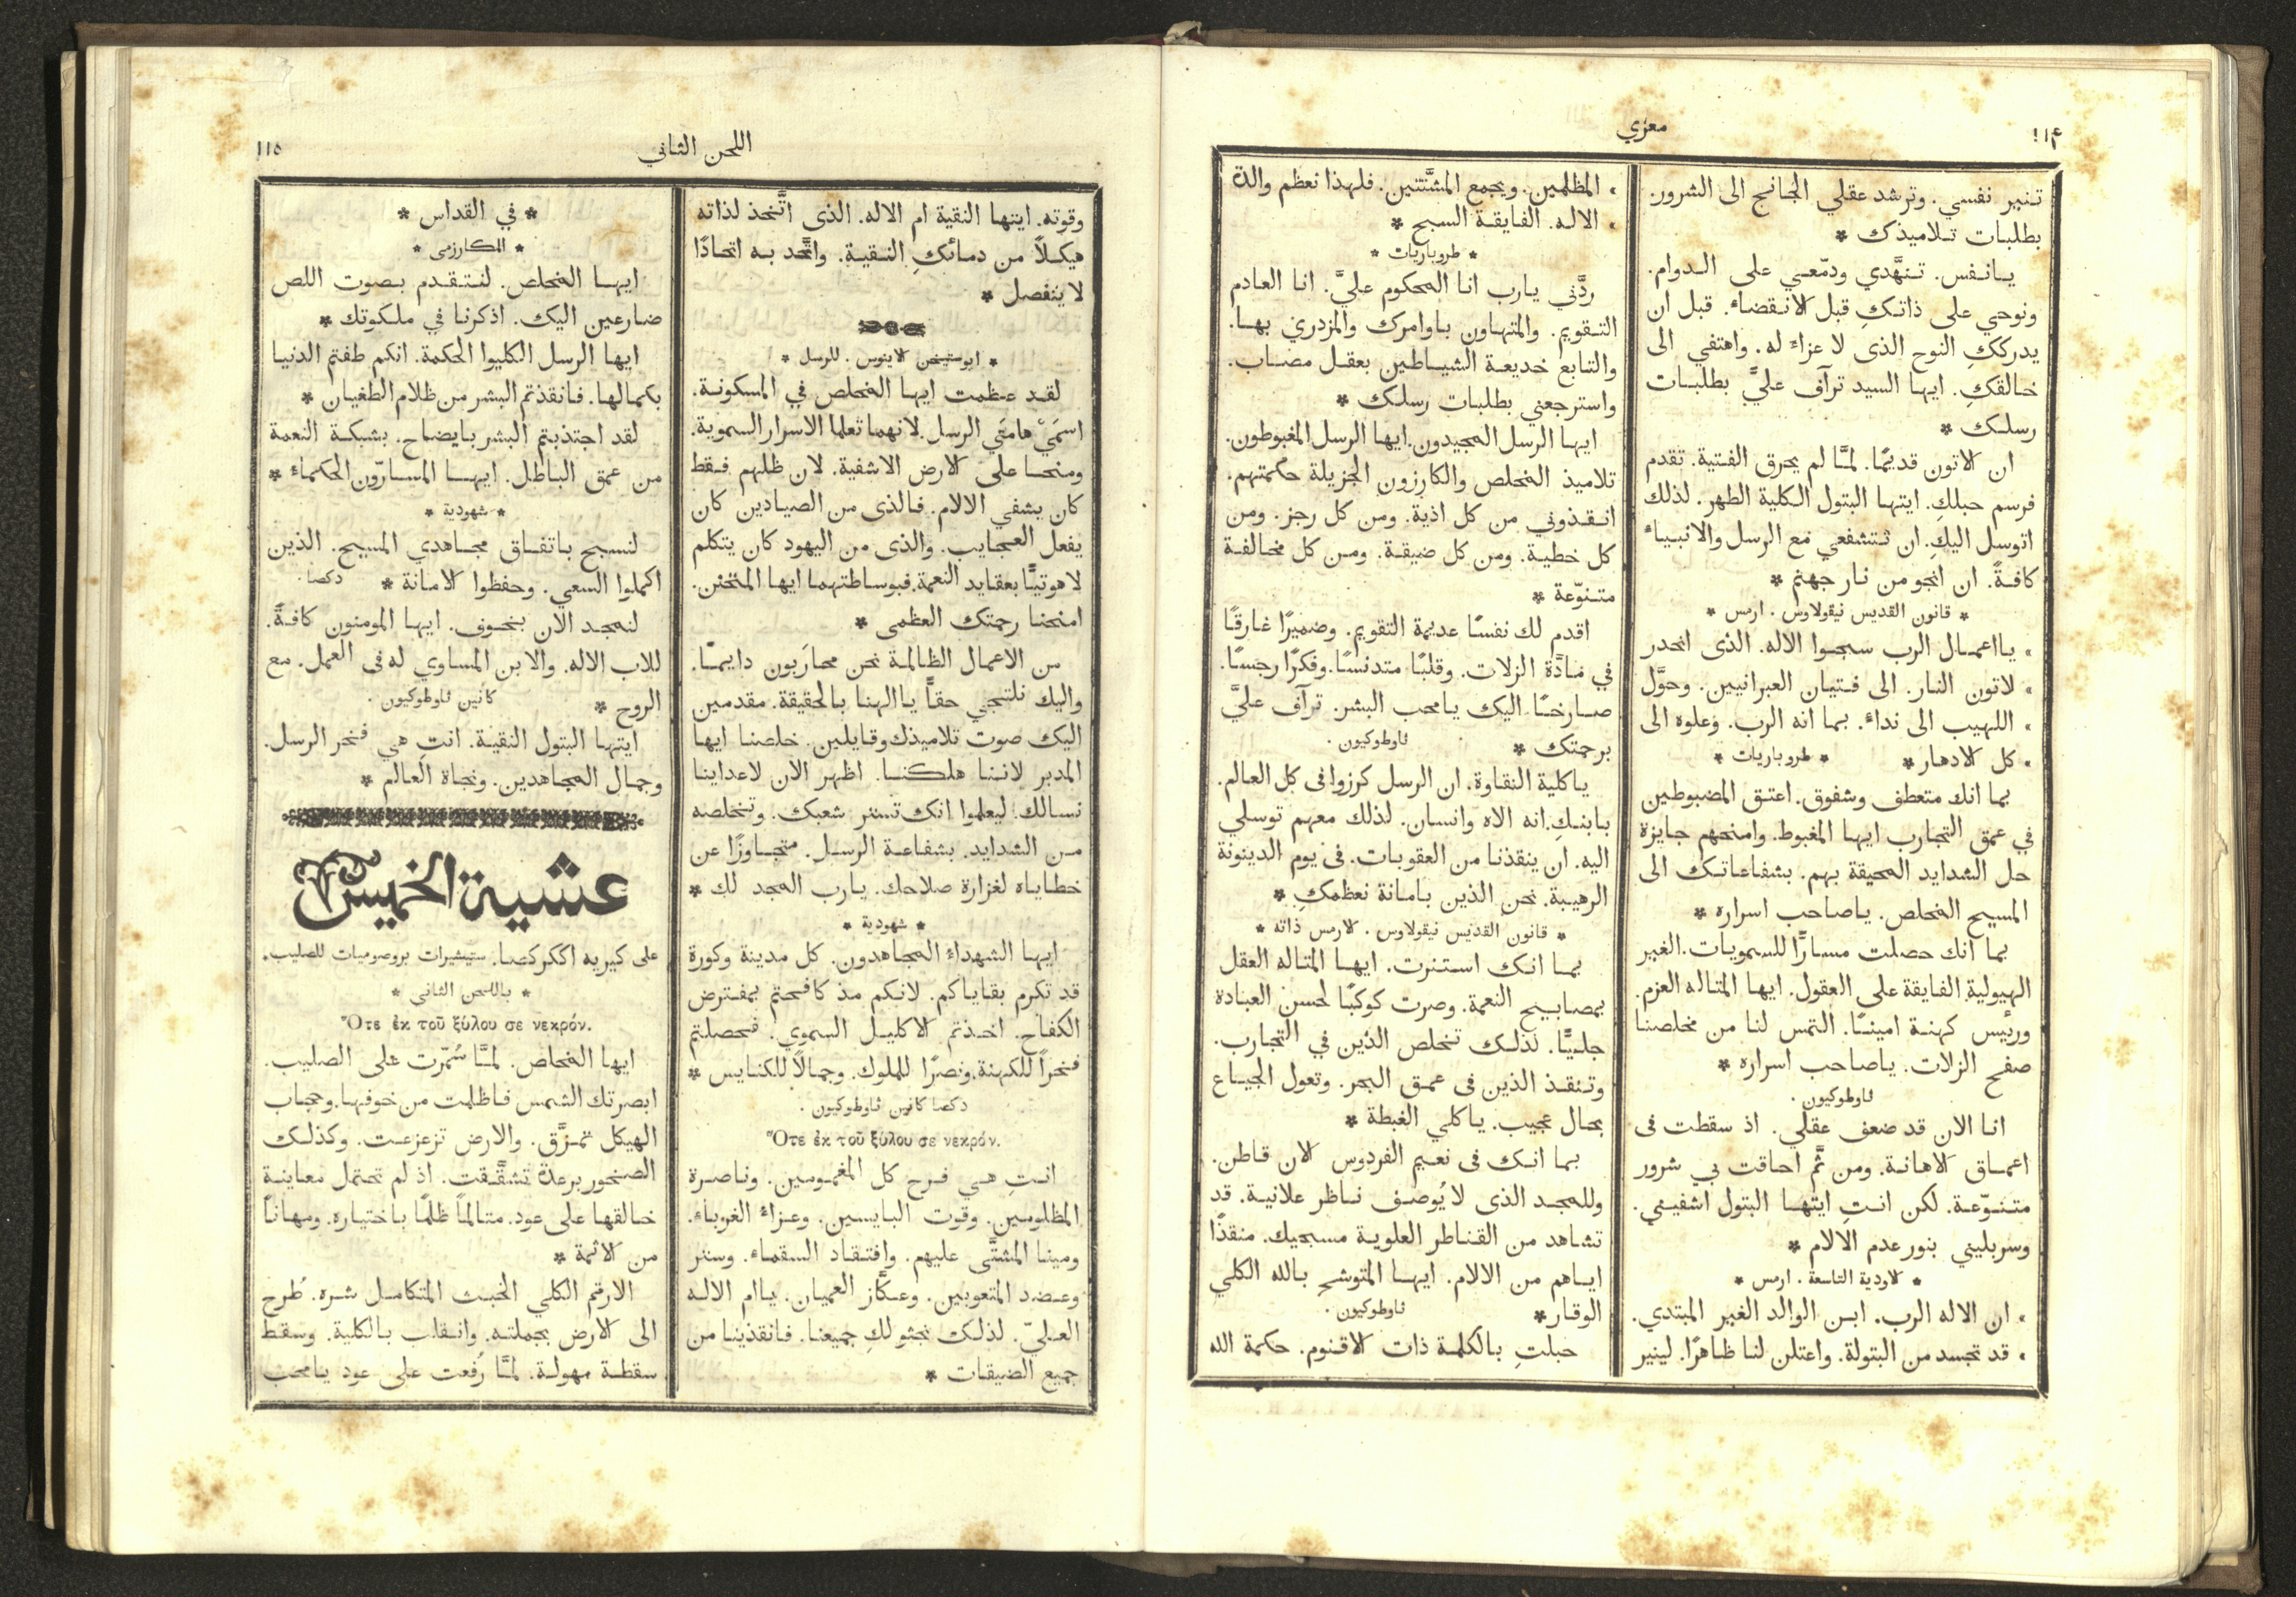 ١١۴
معزي
تنير نفسي. وترشد عقلي الجانح الى الشرور.
بطلبات تلاميذك *
يانفس. تنهَّدي ودمّعي على الدوام.
ونوحي على ذاتكِ قبل الانقضاء. قبل ان
يدرككِ النوح الذى لا عزاء له. واهتفي الى
خالقكِ. ايها السيد ترآف عليَّ بطلبات
رسلك *
ان الاتون قديمًا. لمَّا لم يحرق الفتية. تقدم
فرسم حبلكِ. ايتها البتول الكلية الطهر. لذلك
اتوسل اليكِ. ان تتشفعي مع الرسل والانبياء
كافةً. ان انجو من نار جهنم *
* قانون القديس نيقولاوس . ارمس *
، يااعمال الرب سبحوا الاله. الذى انحدر
، لاتون النار. الى فتيان العبرانيين. وحوَّل
، اللهيب الى نداء. بما انه الرب. وعلوه الى
، كل الادهار * * طروباريات *
بما انك متعطف وشفوق. اعتق المضبوطين
في عمق التجارب ايها المغبوط. وامنحهم جايزة
حل الشدايد المحيقة بهم. بشفاعاتك الى
المسيح المخلص. ياصاحب اسراره *
بما انك حصلت مسارًّا للسمويات. الغير
الهيولية الفايقة على العقول. ايها المتاله العزم.
ورئيس كهنة امينًا. التمس لنا من مخلصنا
صفح الزلات. ياصاحب اسراره *
ثاوطوكيون .
انا الان قد ضعف عقلي. اذ سقطت فى
اعماق الاهانة. ومن ثَّم احاقت بي شرور
متنوّعة. لكن انتِ ايتها البتول اشفيني.
وسربليني بنور عدم الالام *
* الاودية التاسعة . ارمس *
، ان الاله الرب. ابن الوالد الغير المبتدي.
، قد تجسد من البتولة. واعتلن لنا ظاهرًا. لينير
، المظلمين. ويجمع المشَّتتين. فلهذا نعظم والدة
، الاله. الفايقة السبح *
* طروباريات *
ردَّني يارب انا المحكوم عليَّ. انا العادم
التقويم. والمتهاون باوامرك والمزدري بها.
والتابع خديعة الشياطين بعقل مصاب.
واسترجعني بطلبات رسلك *
ايها الرسل المجيدون. ايها الرسل المغبوطون.
تلاميذ المخلص والكارزون الجزيلة حكمتهم.
انقذوني من كل اذية. ومن كل رجز. ومن
كل خطية. ومن كل ضيقة. ومن كل مخالفة
متنوّعة *
اقدم لك نفسًا عديمة التقويم. وضميرًا غارقًا
في مادَّة الزلات. وقلبًا متدنسًا. وفكرًا رجسًا.
صارخًا اليك يامحب البشر. ترآف عليَّ
برحمتك * ثاوطوكيون .
ياكلية النقاوة. ان الرسل كرزوا فى كل العالم.
بابنكِ. انه الاه وانسان. لذلك معهم توسلي
اليه. ان ينقذنا من العقوبات. فى يوم الدينونة
الرهيبة. نحن الذين بامانة نعظمكِ *
* قانون القديس نيقولاوس . الارمس ذاته *
بما انك استنرت. ايها المتاله العقل
بمصابيح النعمة. وصرت كوكبًا لحسن العبادة
جليًّا. لذلك تخلص الذين في التجارب.
وتنقذ الذين فى عمق البحر. وتعول الجياع
بحال عجيب. ياكلي الغبطة *
بما انك فى نعيم الفردوس الان قاطن.
وللمجد الذى لا يُوصف ناظر علانية. قد
تشاهد من القناطر العلوية مسبحيك. منقذًا
اياهم من الالام. ايها المتوشح بالله الكلي
الوقار * ثاوطوكيون .
حبلتِ بالكلمة ذات الاقنوم. حكمة الله
اللحن الثاني
١١٥
وقوته. ايتها النقية ام الاله. الذى اتَّخذ لذاته
هيكلاً من دمائكِ النقية. واتَّحد به اتحادًا
لا ينفصل *
* ابوستيخن الاينوس . للرسل *
لقد عظمت ايها المخلص في المسكونة.
اسمَيْ هامتَي الرسل. لانهما تعلما الاسرار السموية.
ومنحا على الارض الاشفية. لان ظلهم فقط
كان يشفي الالام. فالذى من الصيادين كان
يفعل العجايب. والذى من اليهود كان يتكلم
لاهوتيًّا بعقايد النعمة. فبوساطتهما ايها المتحنن.
امنحنا رحمتك العظمى *
من الاعمال الظالمة نحن محارَبون دايمًا.
واليك نلتجي حقاً ياالهنا بالحقيقة. مقدمين
اليك صوت تلاميذك وقايلين. خلصنا ايها
المدبر لاننا هلكنا. اظهر الان لاعداينا
نسالك. ليعلموا انك تستر شعبك. وتخلصه
من الشدايد. بشفاعة الرسل. متجاوزًا عن
خطاياه لغزارة صلاحك. يارب المجد لك *
* شهودية *
ايها الشهداء المجاهدون. كل مدينة وكورة
قد تكرم بقاياكم. لانكم مذ كافحتم بمفترض
الكفاح. اخذتم الاكليل السموي. فحصلتم
فخراً للكهنة. ونصرًا للملوك. وجمالاً للكنايس *
دكصا كانين ثاوطوكيون .
Ὅτε ἐκ τοῦ ξύλου σε νεκρόν.
انتِ هي فرح كل المغمومين. وناصرة
المظلومين. وقوت البايسين. وعزاء الغرباء.
ومينا المشتَّى عليهم. وافتقاد السقماء. وستر
وعضد المتعوبين. وعكَّاز العميان. ياام الاله
العليّ. لذلك نجثو لكِ جميعنا. فانقذينا من
جميع الضيقات *
* في القداس *
* المكارزمى *
ايها المخلص. لنتقدم بصوت اللص
ضارعين اليك. اذكرنا في ملكوتك *
ايها الرسل الكليوا الحكمة. انكم طفتم الدنيا
بكمالها. فانقذتم البشر من ظلام الطغيان *
لقد اجتذبتم البشر بايضاح. بشبكة النعمة
من عمق الباطل. ايها المسارّون الحكماء *
* شهودية *
لنسبح باتفاق مجاهدي المسيح. الذين
اكملوا السعي. وحفظوا الامانة * دكصا .
لنمجد الان بخوف. ايها المومنون كافةً.
للاب الاله. والابن المساوي له فى العمل. مع
الروح * كانين ثاوطوكيون .
ايتها البتول النقية. انتِ هي فخر الرسل.
وجمال المجاهدين. ونجاة العالم *
عشية الخميس
على كيريه اككركصا. ستيشيرات بروصوميات للصليب.
* باللحن الثاني *
Ὅτε ἐκ τοῦ ξύλου σε νεκρόν.
ايها المخلص. لمَّا سُمّرت على الصليب.
ابصرتك الشمس فاظلمت من خوفها. وحجاب
الهيكل تمزَّق. والارض تزعزعت. وكذلك
الصخور برعدة تشقَّقت. اذ لم تحتمل معاينة
خالقها على عود. متالمًا ظلمًا باختياره. ومهانًا
من الاثمة *
الارقم الكلي الخبث المتكامل شره. طُرح
الى الارض بجملته. وانقلب بالكلية. وسقط
سقطة مهولة. لمَّا رُفعت على عود يامحب